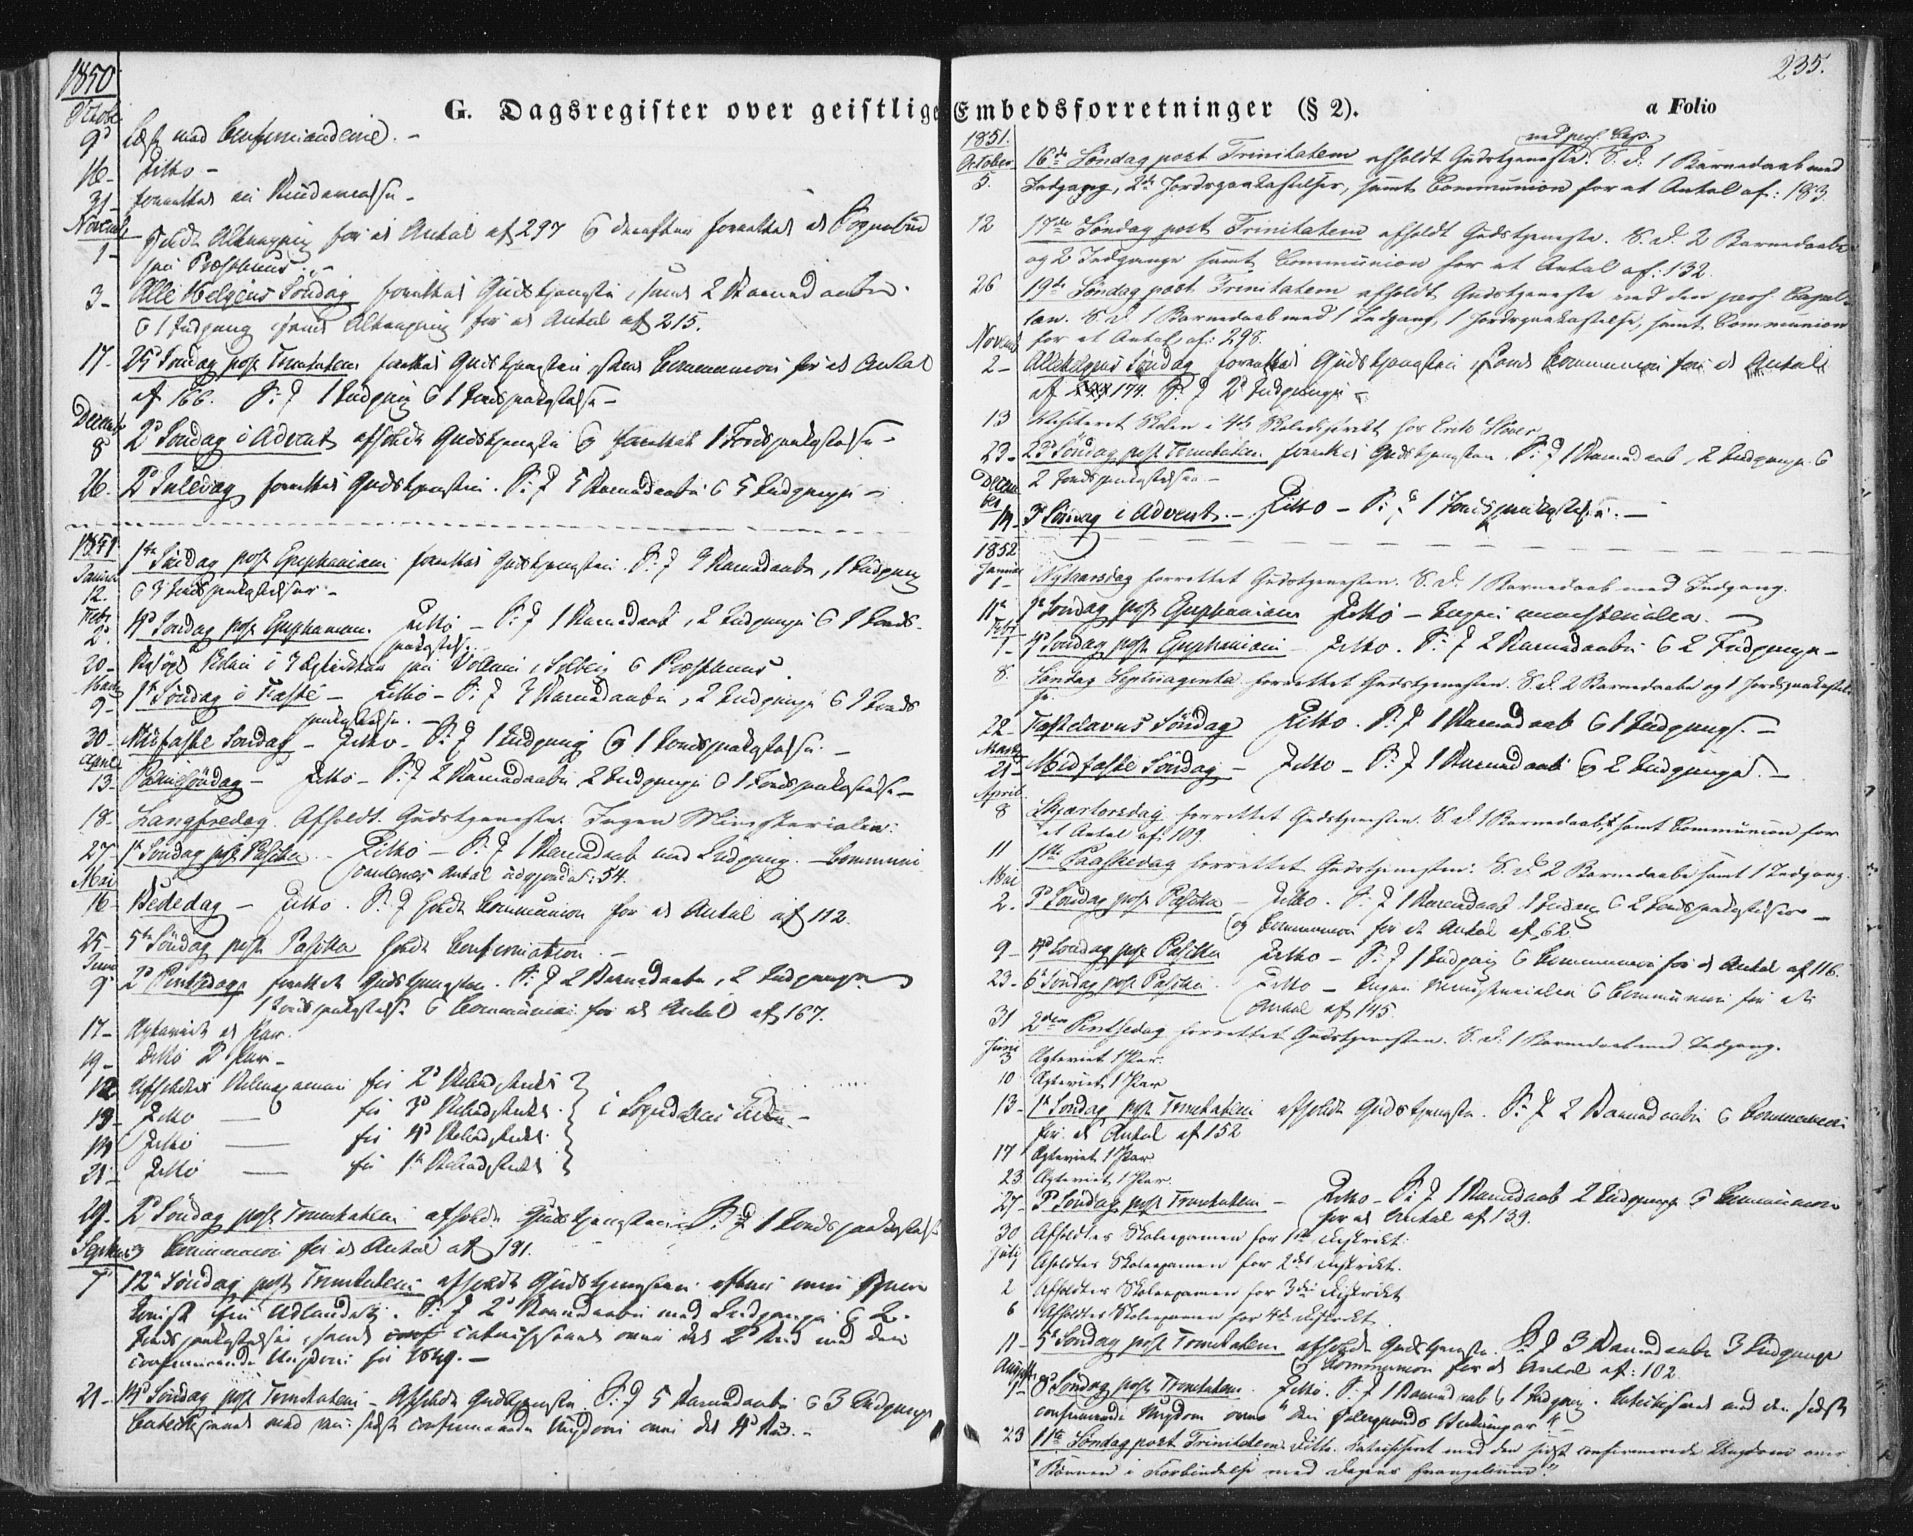 1850
G. Dagsregister over geistlige
Octobr
9d Læst med Confirmanderne. -
16- Ditto -
31- forrettet en
Novemb
1- Altergang for et Antal af 297 & derefter forrettet et Sognebud
paa Præsthuus. -
3- Alle Helgens Søndag forrettet Gudstjenesten, samt 2 Barnedaabe
& 1 Indgang samt Altergang for et Antal af 215.
17- 25d Søndag post Trinitatem forrettet Gudstjenesten samt Communion for et Antal
af 166. S: d 1 Indgang & 1 Jordspaakastelse -
Decemb
8 2d Søndag i Advent afholdt Gudstjeneste & forrettet 1 Jordspaakastelse -
26. 2d Juledag forrettet Gudstjenesten. S: d 5 Barnedaabe & 5 Indgange -
1851
Januar
12. 1ste Søndag post Epiphaniam forrettet Gudstjenesten. S: d Barnedaabe, 1 Indgang
& 3 Jordspaakastelser -
Febr
2d 4d Søndag post Epiphaniam. Ditto - S: d 1 Barnedaab, 2 Indgange & 1 Jords-
paakastelse.
20- Besøgt Skolen i Distriktet paa Vollen, Solberg & Præsthuus.
Marts
9- 1ste Søndag i Faste - Ditto - S: d Barnedaabe, 2 Indgange & Jords
paakastelse. -
30- Midfaste Søndag - Ditto - S: d 1 Indgang & 1 Jordspaakastelse. -
April
13- Palmesøndag - Ditto - S: d 2 Barnedaabe 2 Indgange & 1 Jordspaakastelse -
18- Langfredag. Afholdt Gudstjeneste. Ingen Ministerialia.
27- 1ste Søndag post Pascha - Ditto - S: d 1 Barnedaab med Indgang. - Communi
canternes Antal udgjorde: 54.
Mai
16- Bededag - Ditto. S: d holdt Communion for et Antal af 112.
25- 5te Søndag post Pascha holdt Confirmation. -
Juni
9- 2d Pintsedag forrettet Gudstjenesten. S: d 2 Barnedaabe, 2 Indgange
1 Jordspaakastelse & Communion for et Antal af 167.
17- Ægteviet et Par.
19- Ditto 2d Par -
12 Afholdtes Skoleexamen for 2d Skoledistrikt
13- Ditto — for 3d Skoledistrikt
14 Ditto — for 4d Skoledistrikt
21- Ditto — for 1ste Skoledistrikt
29- 2d Søndag post Trinitatem afholdt Gudstjenesten. S: d 1 Jordspaakastelse
& Communion for et Antal af 191.
Septbr
7 12te Søndag post Trinitatem afholdt Gudstjenesten efter min Hjem
komst fra Udlandet. S: d 2d Barnedaabe med Indgange & 2
Jordspaakastelser, samt catechiserede over det 2d Bud med den
confirmerede Ungdom for 1849. -
21- 14d Søndag post Trinitatem - Afholdt Gudstjeneste. S: d 5 Barnedaabe & 3 Indgange
Catechiserede med den sidst confirmerede Ungdom over det 4d Bud. -
235.
Embedsforretninger (§ 2).
a Folio
1851.
October
5. 16de Søndag post Trinitatem afholdt Gudstjeneste ved pers. Cap. S. d. 1 Barnedaab med
Indgang, 2de Jordspaakastelser, samt Communion for et Antal af: 183.
12 17de Søndag post Trinitatem afholdt Gudstjeneste. S. d. 2 Barnedaabe
og 2 Indgange samt Communion for et Antal af: 132.
26 19de Søndag post Trinitatem afholdt Gudstjeneste ved den pers. Capel-
lan. S. d. 1 Barnedaab med 1 Indgang, 1 Jordspaakastelse, samt Communion
for et Antal af: 298.
Novemb
2- Allehelgens Søndag forrettet Gudstjenesten, samt Communion for et Antal
af 174. S: d 2d Indgange -
13 Visiteret Skolen i 4de Skoledistrikt hos Erik
23- 23d Søndag post Trinitatem forrettet Gudstjenesten. S: d 1 Barnedaab, 2 Indgange &
2 Jordspaakastelser -
Decem
ber
14- 3d Søndag i Advent. - Ditto - S: d 1 Jordspaakastelse. -
1852
Januar
1- Nytaarsdag forrettet Gudstjenesten. S. d. 1 Barnedaab med Indgang.
11te 1ste Søndag post Epiphaniam Ditto - Ingen Ministerialia. -
Febr
1- 4d Søndag post Epiphaniam - Ditto. S: d 2 Barnedaabe & 2 Indgange -
8. Søndag Septuagesima forrettet Gudstjenesten. S. d. 2 Barnedaabe og 1 Jordspaakastel-
se.
22- Fastelavns Søndag Ditto. S: d 1 Barnedaab & 1 Indgang. -
Marts
21- Midfaste Søndag - Ditto - S: d 1 Barnedaab & 2 Indgange. -
April.
8 Skjærtorsdag forrettet Gudstjenesten. S. d. 1 Barnedaab, samt Communion for
et Antal af: 109.
11 1ste Paaskedag forrettet Gudstjenesten: S. d. 2 Barnedaabe samt 1 Indgang.
Mai
2. 3d Søndag post Pascha - Ditto. S: d 1 Barnedaab 1 Indgang & 2 Jordspaakastelser -
og Communion for et Antal af, 62.
9- 4d Søndag post Pascha Ditto - S: d 1 Indgang & Communion for et Antal af 116.
23- 6te Søndag post Pascha. Ditto - Ingen Ministerialia & Communion for et
Antal af 145.
31 2den Pintsedag forrettet Gudstjenesten. S. d. 1 Barnedaab med Indgang.
Juni
3 Ægteviet 1 Par.
10 Ægteviet 1 Par
13- 1ste Søndag post Trinitatem afholdt Gudstjeneste. S: d 2 Barnedaabe & Communion
for et Antal af 152
17 Ægteviet 1 Par
23 Ægteviet 1 Par.
27- 3d Søndag post Trinitatem - Ditto - S: d 1 Barnedaab 2 Indgange & Communion
for et Antal af 139.
30 Afholdtes Skoleexamen for 1ste District.
Juli
Afholdtes Skoleexamen for 2det District.
2 Afholdtes Skoleexamen for 3die District
6 Afholdtes Skoleexamen for 4de District.
11- 5te Søndag post Trinitatem afholdt Gudstjeneste. S: d 3 Barnedaabe 3 Indgange
& Communion for et Antal af: 102.
August
1- 8d Søndag post Trinitatem. Ditto. S: d 1 Barnedaab & 1 Indgang. Catechiseret med den sidst
confirmerede Ungdom over
23 11te Søndag post Trinitatem. Ditto. Catechiseret med den sidst confirmerede Ungdom over
"Bønnen i Forbindelse med Dagens Evangelium".